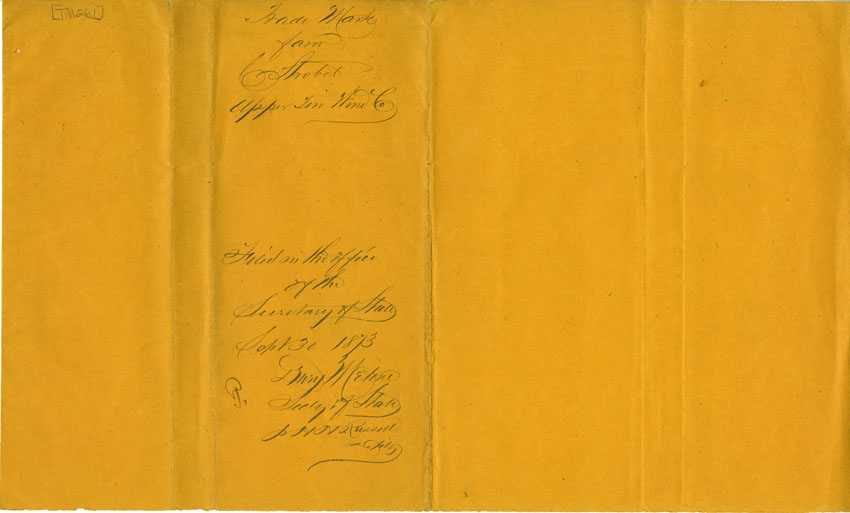 [TM26]
Trade Mark
for
C Strobel
Upper Wine Co
Filed in the office
of the
Secretary of State
Sept 30 1873
Drury Melone
Secty of State
Russell
Dpty